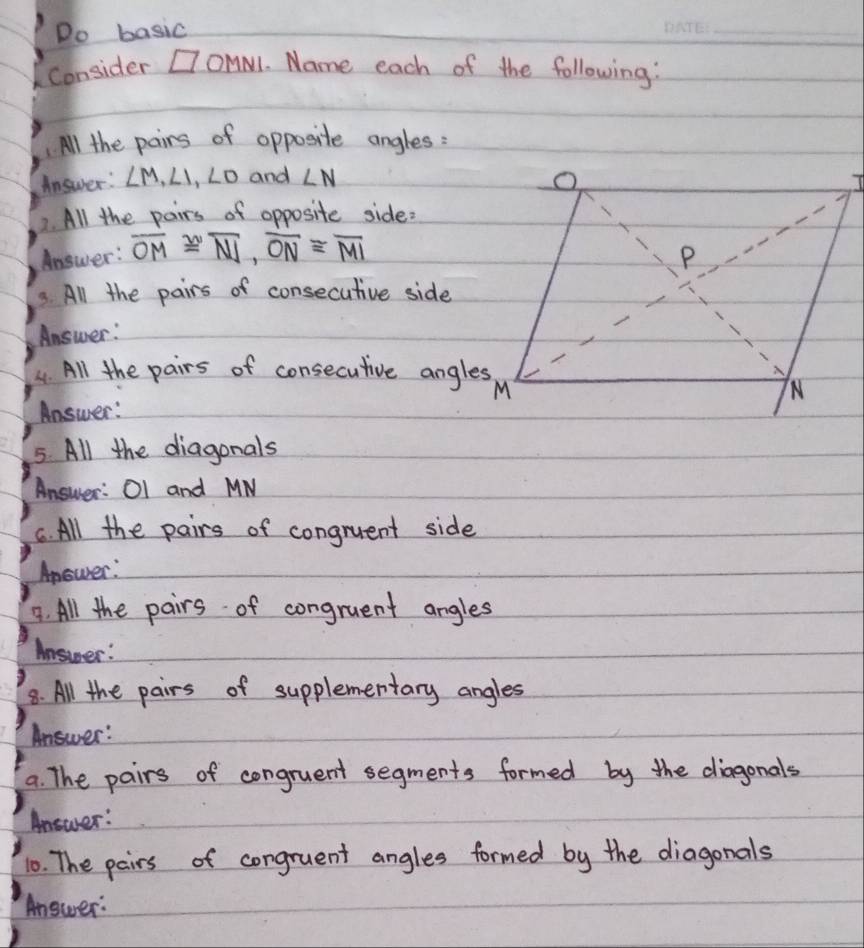 Do basic
DATE:
Consider ▱ OMNI. Name each of the following:
1. All the pairs of opposite angles:
Answer: ∠M, ∠I, ∠O and ∠N
2. All the pairs of opposite side:
Answer: O̅M̅ ≅ N̅I̅, O̅N̅ ≅ M̅I̅
3. All the pairs of consecutive side
Answer:
4. All the pairs of consecutive angles
Answer:
5. All the diagonals
Answer: OI and MN
6. All the pairs of congruent side
Answer:
7. All the pairs of congruent angles
Answer:
8. All the pairs of supplementary angles
Answer:
9. The pairs of congruent segments formed by the diagonals
Answer:
10. The pairs of congruent angles formed by the diagonals
Answer:
O
I
P
M
N